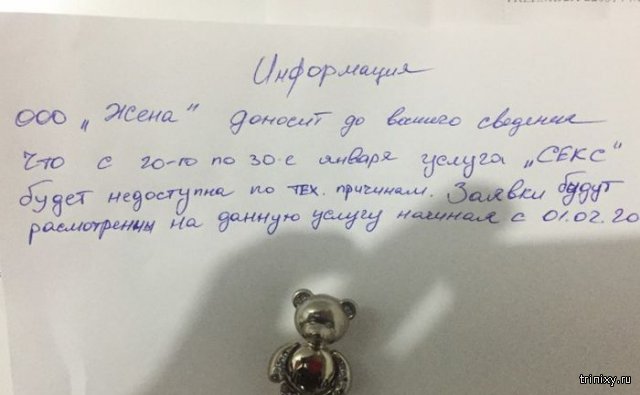 Информация
ООО „Жена" доносит до вашего сведение
что с 20-го по 30-е января услуга „СЕКС"
будет недоступна по тех. причинам. Заявки будут
расмотренны на данную услугу начиная с 01.02.20
trinixy.ru